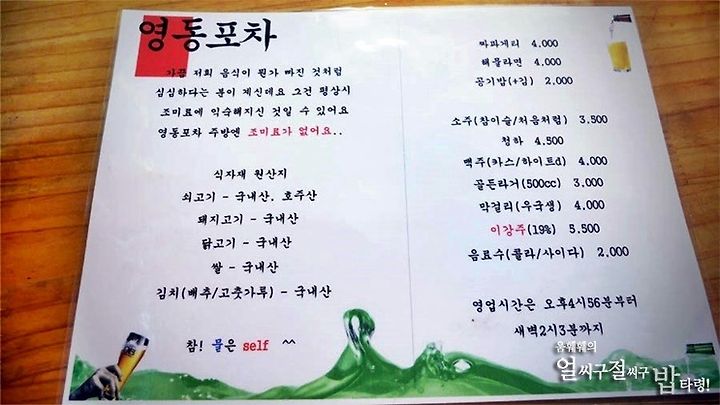 영동포차
가끔 저희 음식이 뭔가 빠진 것처럼
심심하다는 분이 계신데요 그건 평상시
조미료에 익숙해지신 것일 수 있어요
영동포차 주방엔 조미료가 없어요..
식자재 원산지
쇠고기 - 국내산. 호주산
돼지고기 - 국내산
닭고기 - 국내산
쌀 - 국내산
김치(배추/고춧가루) - 국내산
참! 물은 self ^^
짜파게티 4.000
해물라면 4.000
공기밥(+김) 2.000
소주(참이슬/처음처럼) 3.500
청하 4.500
맥주(카스/하이트d) 4.000
골든라거(500cc) 3.000
막걸리(우국생) 4.000
이강주(19%) 5.500
음료수(콜라/사이다) 2.000
영업시간은 오후4시56분부터
새벽2시3분까지
움웨웨의
얼씨구절씨구 밥타령!